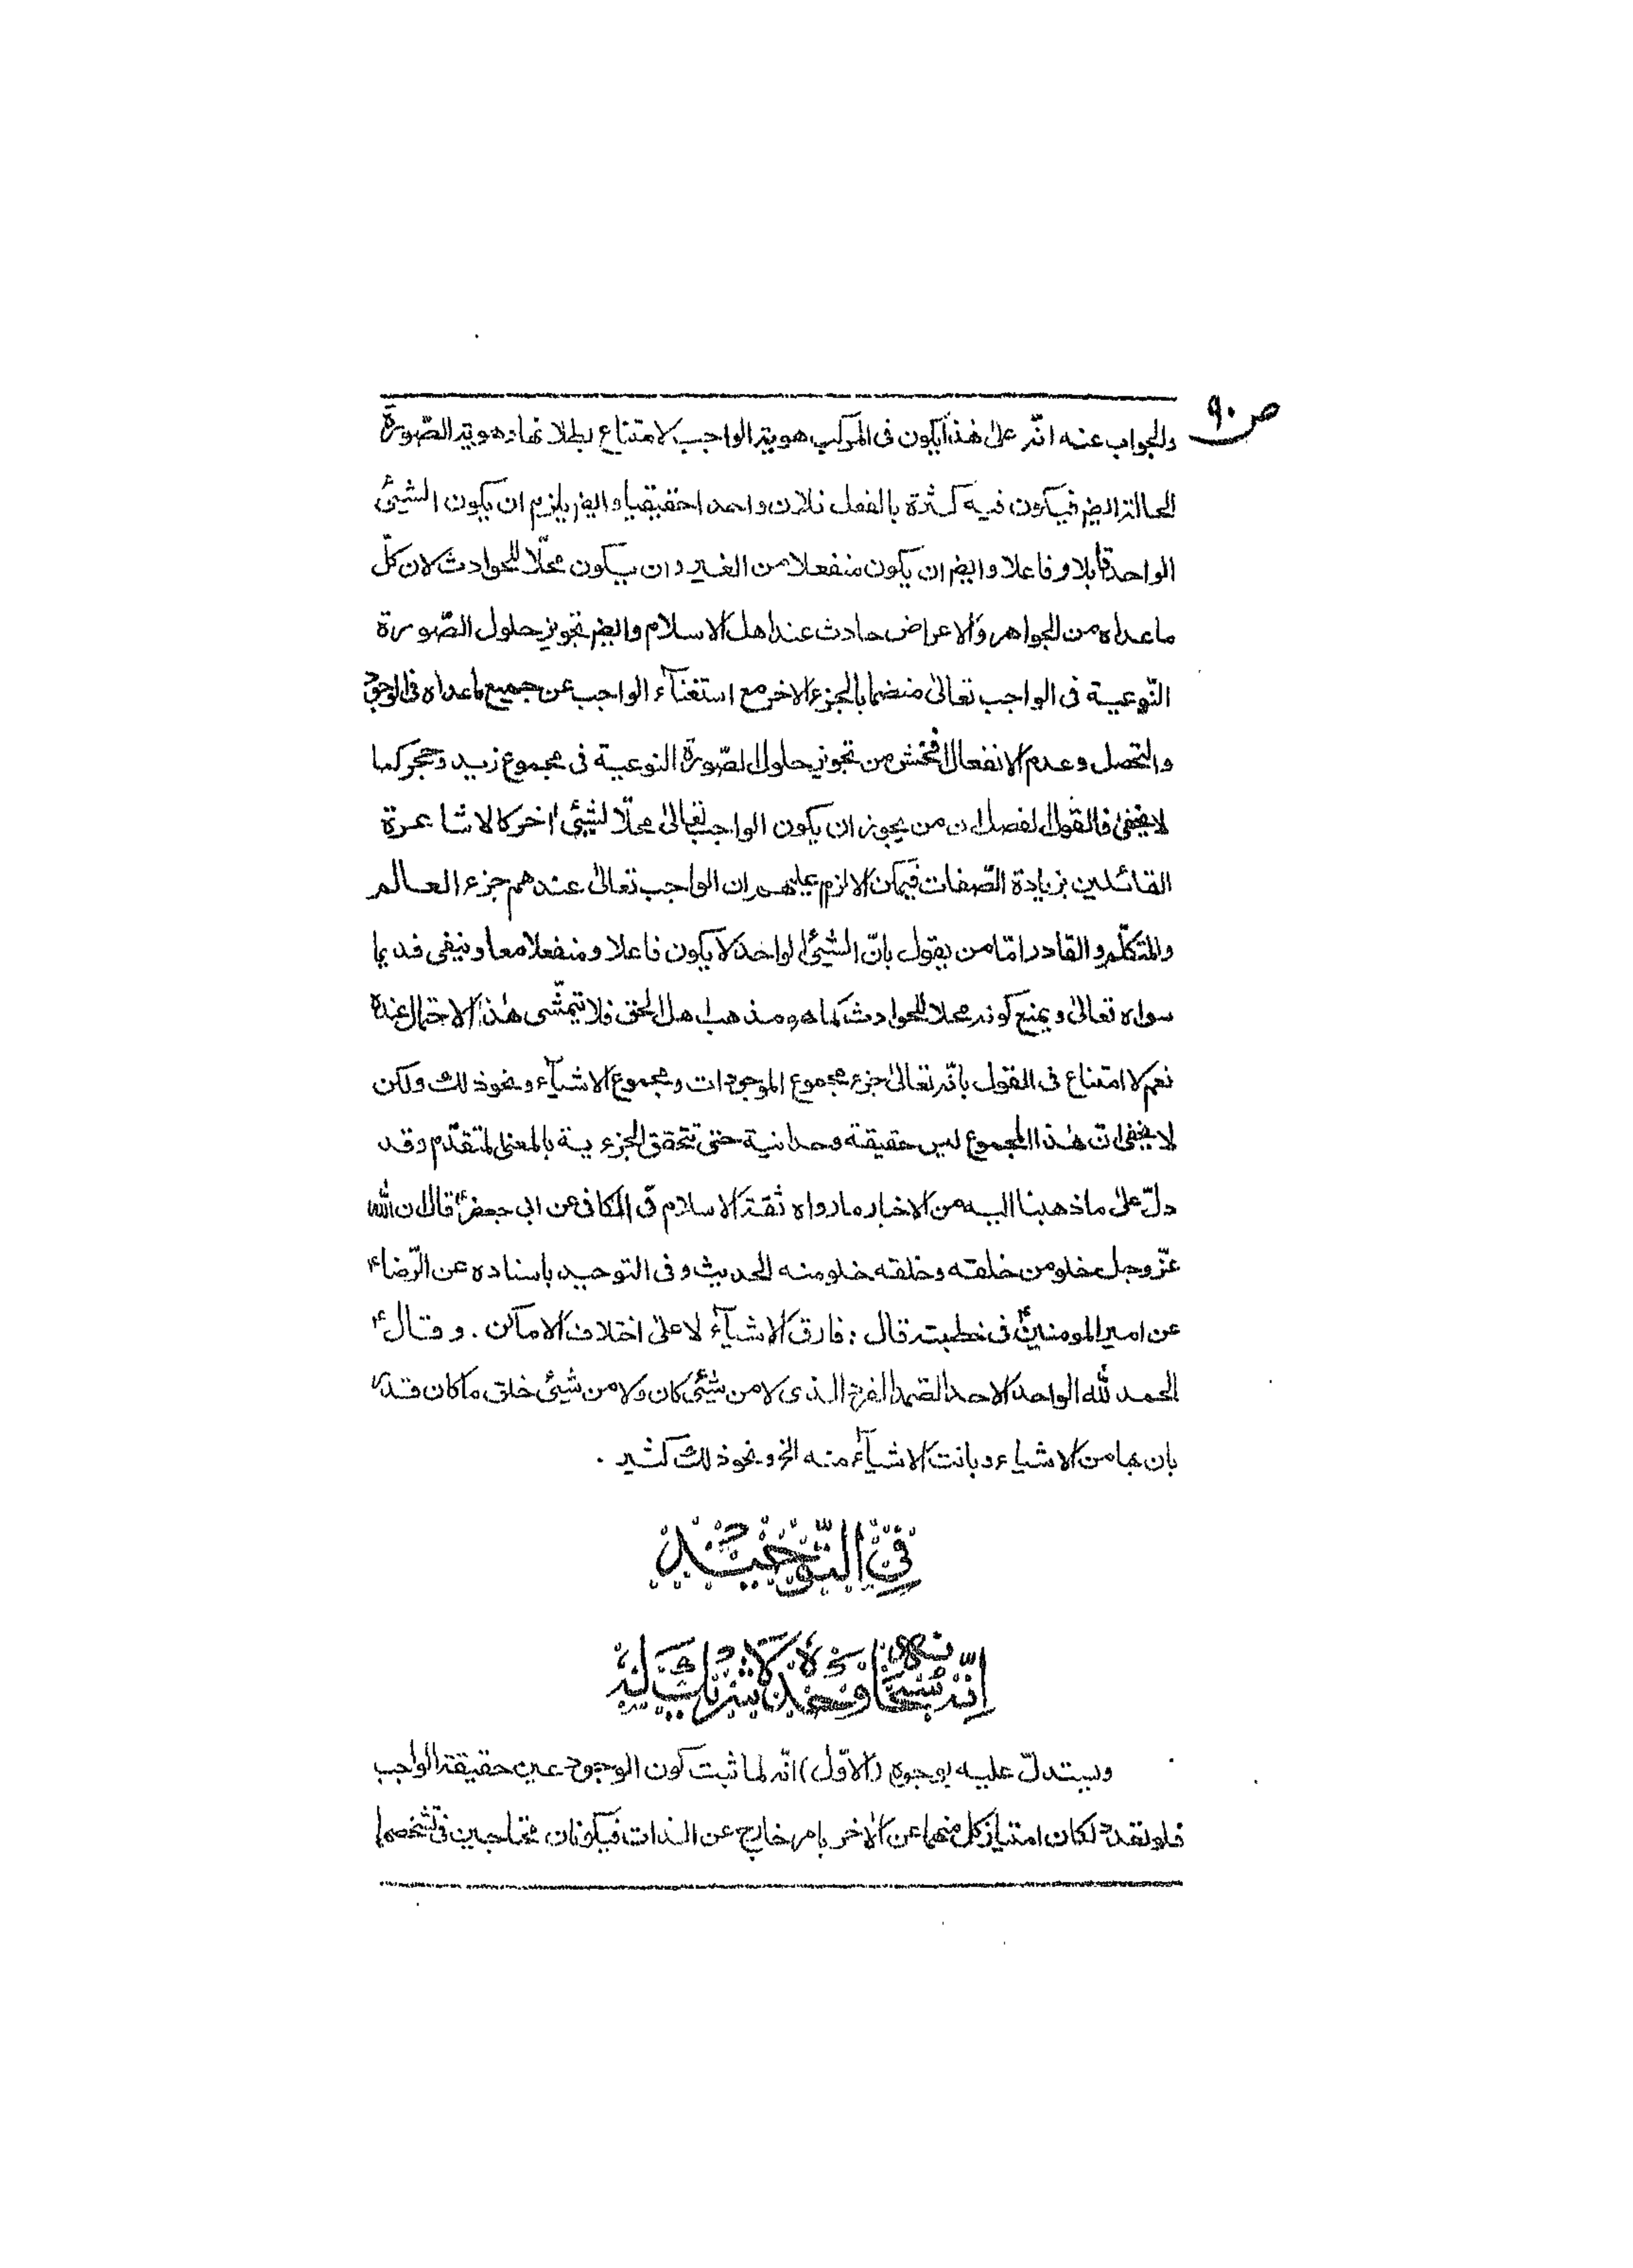 ص ٩٠
والجواب عنه انّه علىٰ هٰذا يكون فى المركب هوية الواجب لامتناع بطلانها وهوية الصّورة
الحالة ايضم فيكون فيه كثرة بالفعل فلا ن واحدا حقيقيا وايضم يلزم ان يكون الشيئ
الواحد قابلا وفاعلا وايضم ان يكون منفعلا من الغير وان يكون محلّا للحوادث لان كلّ
ما عداه من الجواهر والاعراض حادث عند اهل الاسلام وايضم تجويز حلول الصّورة
النّوعية فى الواجب تعالىٰ منضما بالجزء الاخر مع استغنآء الواجب عن جميع ما عداه فى الوجود
والتحصل وعدم الانفعال افحش من تجويز حلول الصّورة النوعية فى مجموع زيد وحجر كما
لا يخفىٰ فالقول الفصل ان من يجوز ان يكون الواجب تعالىٰ محلّا لشيئ اخر كالاشاعرة
القائلين بزيادة الصّفات فيمكن الالزم عليهم ان الواجب تعالىٰ عندهم جزء العالم
والمتكلّم والقادر امّا من يقول بانّ الشيئ الواحد لا يكون فاعلا ومنفعلا معا وينفى قديما
سواه تعالىٰ ويمنع كونه محلا للحوادث كما هو مذهب اهل الحق فلا يتمشّى هٰذا الاحتمال عنده
نعم لا امتناع فى القول بانّه تعالىٰ جزء مجموع الموجودات ومجموع الاشيآء ونحو ذلك ولكن
لا يخفىٰ ان هٰذا المجموع ليس حقيقة وحدانية حتى تتحقق الجزءية بالمعنى المتقدّم وقد
دلّ علىٰ ما ذهبنا اليه من الاخبار ما رواه ثقة الاسلام فى الكافى عن ابى جعفرؑ قال ان الله
عزّ وجل خلو من خلقه وخلقه خلو منه الحديث وفى التوحيد باسناده عن الرّضاؑ
عن امير المومنينؑ فى خطبته قال : فارق الاشيآء لا علىٰ اختلاف الاماكن . وقالؑ
الحمد لله الواحد الاحد الصّمد الفرد الذى لا من شيئ كان ولا من شيئ خلق ما كان قدرة
بان بها من الاشياء وبانت الاشيآء منه الخ ونحو ذلك كثير .
فِى التَّوحِيْد
اِنّه سُبْحَانَه وَحْدَه لَا شَرِيْكَ لَه
ويستدلّ عليه بوجوه (الاوّل) انّه لما ثبت كون الوجود عين حقيقة الواجب
فلو تعدد لكان امتياز كل منهما عن الاخر بامر خارج عن الذات فيكونان محتاجين فى تشخصهما